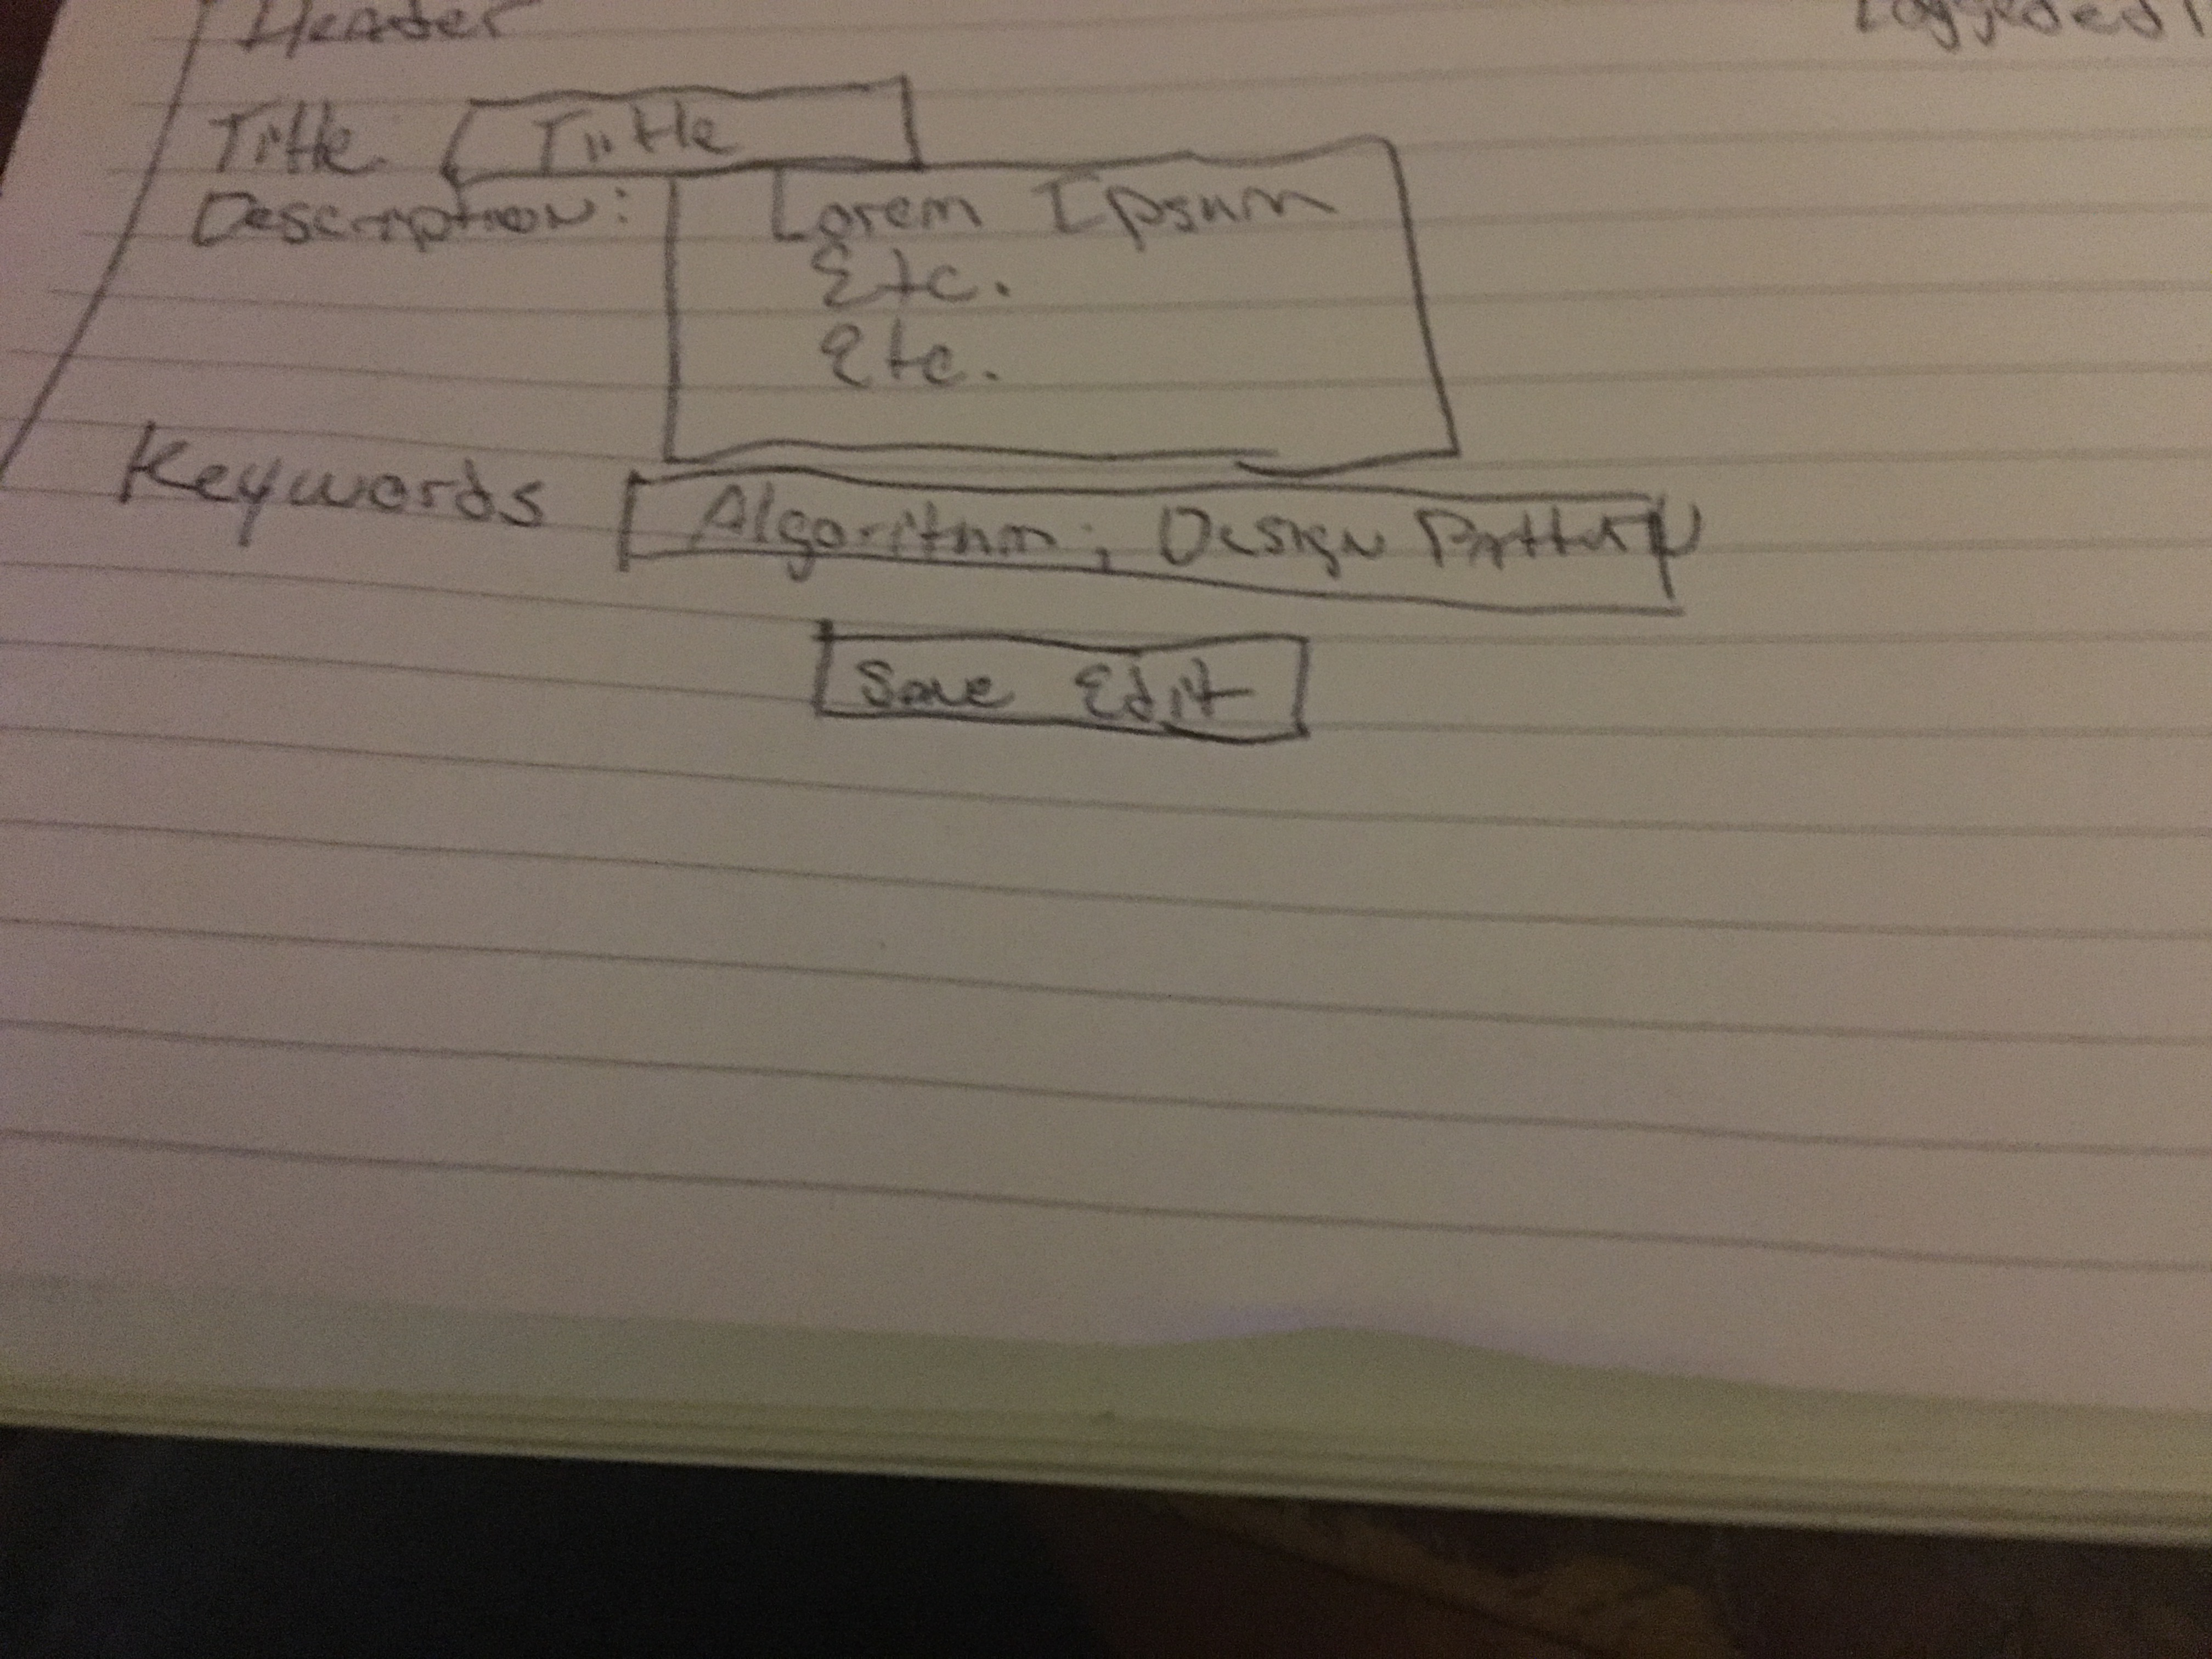 Header
Title Title
Description: Lorem Ipsum
Etc.
Etc.
Keywords Algorithm; Design Pattern
Save Edit